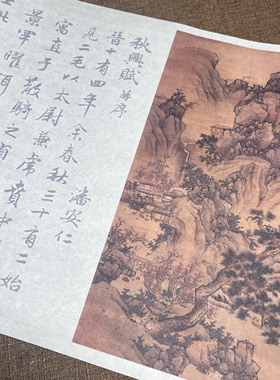 秋興賦 并序
潘安仁
晉十有四年余春秋三十有二始
見二毛以太尉掾兼虎賁中
寓直于散騎之省
景罕曜珥